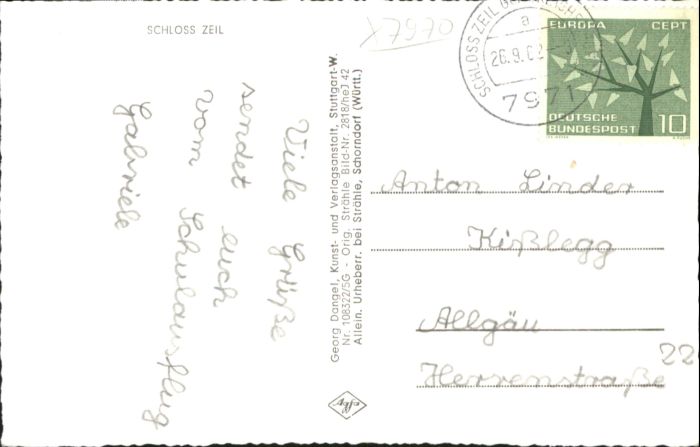 SCHLOSS ZEIL
X7970
SCHLOSS ZEIL
a
26.9.62
7971
EUROPA CEPT
DEUTSCHE
BUNDESPOST 10
Viele Grüße
sendet euch
vom Schulausflug
Gabriele
Georg Dangel, Kunst- und Verlagsanstalt, Stuttgart-W.
Nr. 108322/5G - Orig. Strähle Bild-Nr. 2818/heJ 42
Allein. Urheberr. bei Strähle, Schorndorf (Württ.)
Agfa
Anton Linder
Kißlegg
Allgäu
Herrenstraße 22